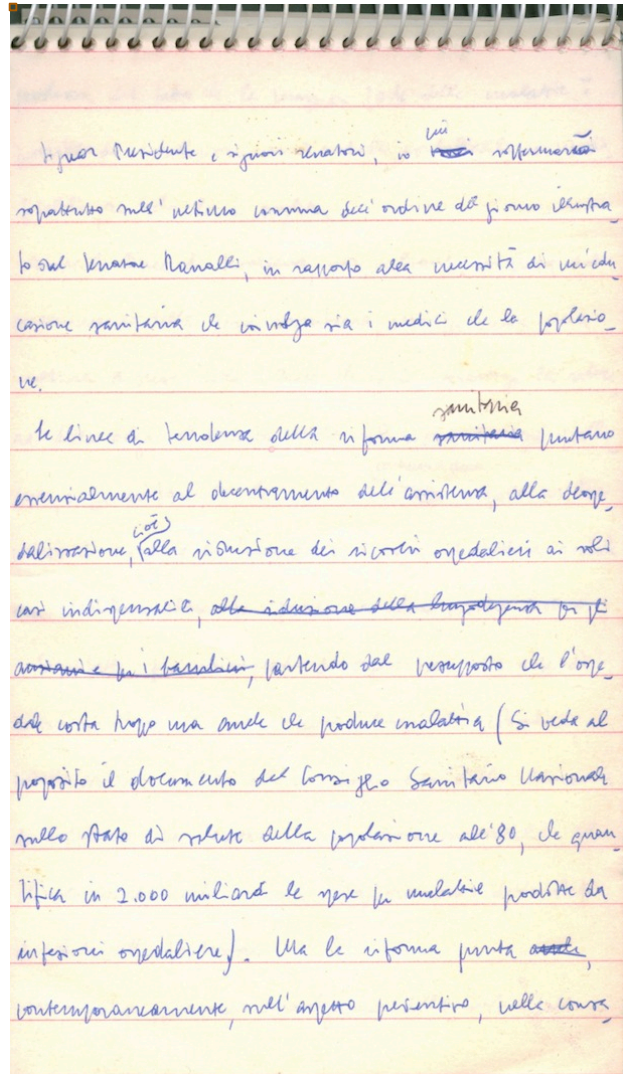 Signor Presidente e signori senatori, io mi soffermerò
soprattutto sull'ultimo comma dell'ordine del giorno illustra
to dal senatore Ranalli, in rapporto alla necessità di un'edu
cazione sanitaria che coinvolga sia i medici che la popolazio_
ne.
sanitaria
Le linee di tendenza della riforma sanitaria puntano
essenzialmente al decentramento dell'assistenza, alla deospe_
cioè
dalizzazione, (alla riduzione dei ricoveri ospedalieri ai soli
casi indispensabili, alla riduzione della lungodegenza per gli
anziani e per i bambini, partendo dal presupposto che l'ospe_
dale costa troppo ma anche che produce malattia (Si veda al
proposito il documento del Consiglio Sanitario Nazionale
sullo stato di salute della popolazione all'80, che quan_
tifica in 2.000 miliardi le spese per malattie prodotte da
infezioni ospedaliere). Ma la riforma punta anche,
contemporaneamente, sull'aspetto preventivo, nella consa_